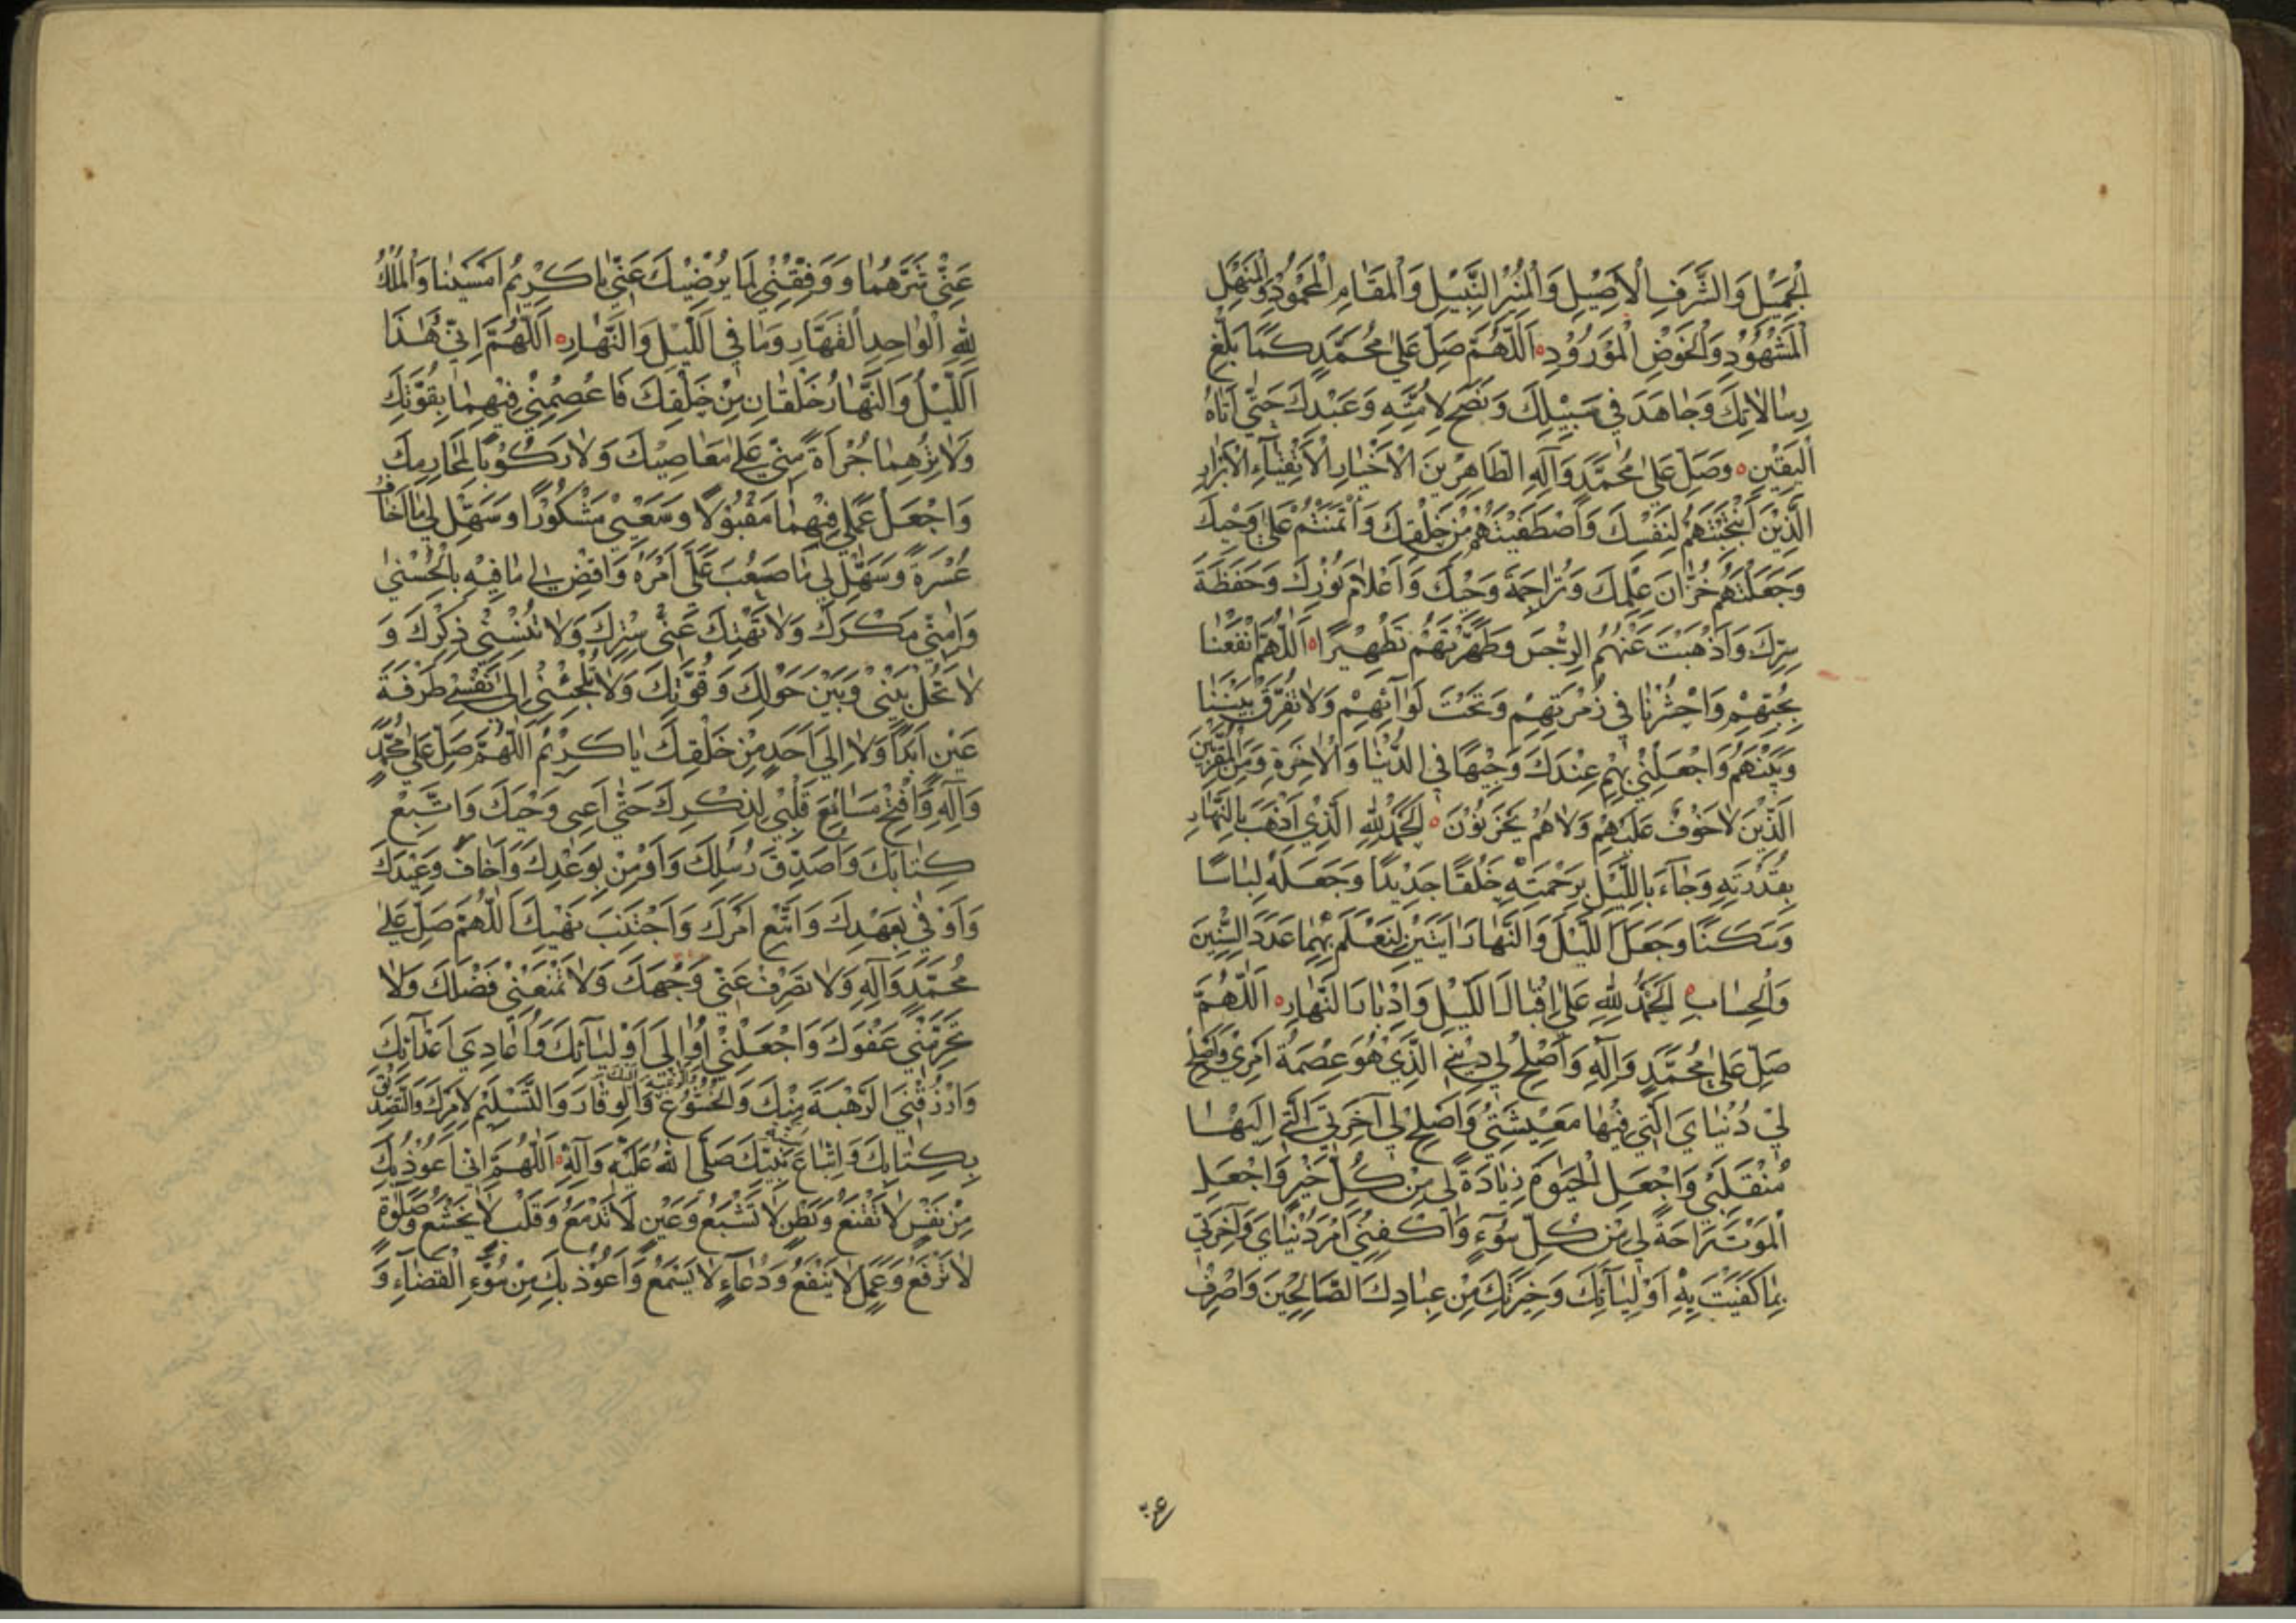 الْجَمِيْلِ وَالشَّرَفِ الْاَصِيْلِ وَالْمِنْبَرِ النَّبِيْلِ وَالْمَقَامِ الْمَحْمُوْدِ وَالْمَنْهَلِ
الْمَشْهُوْدِ وَالْحَوْضِ الْمَوْرُوْدِ اَللّٰهُمَّ صَلِّ عَلٰى مُحَمَّدٍ كَمَا بَلَّغَ
رِسَالَاتِكَ وَجَاهَدَ فِي سَبِيْلِكَ وَنَصَحَ لِاُمَّتِهِ وَعَبَدَكَ حَتّٰى اَتَاهُ
الْيَقِيْنِ وَصَلِّ عَلٰى مُحَمَّدٍ وَآلِهِ الطَّاهِرِيْنَ الْاَخْيَارِ الْاَتْقِيَآءِ الْاَبْرَارِ
الَّذِيْنَ انْتَجَبْتَهُمْ لِنَفْسِكَ وَاصْطَفَيْتَهُمْ مِنْ خَلْقِكَ وَائْتَمَنْتَهُمْ عَلٰى وَحْيِكَ
وَجَعَلْتَهُمْ خُزَّانَ عِلْمِكَ وَتُرَاجِمَةَ وَحْيِكَ وَاَعْلَامَ نُوْرِكَ وَحَفَظَةَ
سِرِّكَ وَاَذْهَبْتَ عَنْهُمُ الرِّجْسَ وَطَهَّرْتَهُمْ تَطْهِيْرًا اَللّٰهُمَّ انْفَعْنَا
بِحُبِّهِمْ وَاحْشُرْنَا فِي زُمْرَتِهِمْ وَتَحْتَ لِوَآئِهِمْ وَلَا تُفَرِّقْ بَيْنَنَا
وَبَيْنَهُمْ وَاجْعَلْنِيْ بِهِمْ عِنْدَكَ وَجِيْهًا فِي الدُّنْيَا وَالْاٰخِرَةِ وَمِنَ الْمُقَرَّبِيْنَ
الَّذِيْنَ لَا خَوْفٌ عَلَيْهِمْ وَلَا هُمْ يَحْزَنُوْنَ اَلْحَمْدُ لِلّٰهِ الَّذِيْ اَذْهَبَ بِالنَّهَارِ
بِقُدْرَتِهِ وَجَآءَ بِاللَّيْلِ بِرَحْمَتِهِ خَلْقًا جَدِيْدًا وَجَعَلَهُ لِبَاسًا
وَسَكَنًا وَجَعَلَ اللَّيْلَ وَالنَّهَارَ اٰيَتَيْنِ لِنَعْلَمَ بِهِمَا عَدَدَ السِّنِيْنَ
وَالْحِسَابِ اَلْحَمْدُ لِلّٰهِ عَلٰى اِقْبَالِ اللَّيْلِ وَاِدْبَارِ النَّهَارِ اَللّٰهُمَّ
صَلِّ عَلٰى مُحَمَّدٍ وَآلِهِ وَاَصْلِحْ لِي دِيْنِيَ الَّذِيْ هُوَ عِصْمَةُ اَمْرِيْ وَاَصْلِحْ
لِيْ دُنْيَايَ الَّتِيْ فِيْهَا مَعِيْشَتِيْ وَاَصْلِحْ لِي آخِرَتِيَ الَّتِيْ اِلَيْهَا
مُنْقَلَبِيْ وَاجْعَلِ الْحَيٰوةَ زِيَادَةً لِي مِنْ كُلِّ خَيْرٍ وَاجْعَلِ
الْمَوْتَ رَاحَةً لِي مِنْ كُلِّ سُوْٓءٍ وَاكْفِنِيْ اَمْرَ دُنْيَايَ وَآخِرَتِي
بِمَا كَفَيْتَ بِهِ اَوْلِيَآئَكَ وَخِيَرَتَكَ مِنْ عِبَادِكَ الصَّالِحِيْنَ وَاصْرِفْ
عَنِّيْ شَرَّهُمَا وَوَفِّقْنِيْ لِمَا يُرْضِيْكَ عَنِّيْ يَا كَرِيْمُ اَمْسَيْنَا وَالْمُلْكُ
لِلّٰهِ الْوَاحِدِ الْقَهَّارِ وَمَا فِي اللَّيْلِ وَالنَّهَارِ اَللّٰهُمَّ اِنِّي هٰذَا
اللَّيْلُ وَالنَّهَارُ خَلْقَانِ مِنْ خَلْقِكَ فَاعْصِمْنِيْ فِيْهِمَا بِقُوَّتِكَ
وَلَا تُرِهِمَا جُرْاَةً مِنِّيْ عَلٰى مَعَاصِيْكَ وَلَا رُكُوْبًا لِمَحَارِمِكَ
وَاجْعَلْ عَمَلِي فِيْهِمَا مَقْبُوْلًا وَسَعْيِيْ مَشْكُوْرًا وَسَهِّلْ لِي مَا اَخَافُ
عُسْرَةً وَسَهِّلْ لِي مَا صَعُبَ عَلَيَّ اَمْرُهُ وَاقْضِ لِي مَا فِيْهِ بِالْحُسْنٰى
وَاٰمِنِّي مَكْرَكَ وَلَا تَهْتِكْ عَنِّيْ سِتْرَكَ وَلَا تُنْسِنِيْ ذِكْرَكَ وَ
لَا تَحُلْ بَيْنِيْ وَبَيْنَ حَوْلِكَ وَقُوَّتِكَ وَلَا تُلْجِئْنِيْ اِلٰى نَفْسِيْ طَرْفَةَ
عَيْنٍ اَبَدًا وَلَا اِلٰى اَحَدٍ مِنْ خَلْقِكَ يَا كَرِيْمُ اَللّٰهُمَّ صَلِّ عَلٰى مُحَمَّدٍ
وَآلِهِ وَافْتَحْ مَسَامِعَ قَلْبِيْ لِذِكْرِكَ حَتّٰى اَعِيَ وَحْيَكَ وَاَتَّبِعْ
كِتَابَكَ وَاُصَدِّقَ رُسُلَكَ وَاُوْمِنْ بِوَعْدِكَ وَاَخَافَ وَعِيْدَكَ
وَاَوْفِيَ بِعَهْدِكَ وَاَتَّبِعَ اَمْرَكَ وَاَجْتَنِبَ نَهْيَكَ اَللّٰهُمَّ صَلِّ عَلٰى
مُحَمَّدٍ وَآلِهِ وَلَا تَصْرِفْ عَنِّيْ وَجْهَكَ وَلَا تَمْنَعْنِيْ فَضْلَكَ وَلَا
تَحْرِمْنِيْ عَفْوَكَ وَاجْعَلْنِيْ اُوَالِيَ اَوْلِيَآئَكَ وَاُعَادِيَ اَعْدَآئَكَ
وَارْزُقْنِيَ الرَّهْبَةَ مِنْكَ وَالْخُشُوْعَ وَالرَّغْبَةَ اِلَيْكَ وَالْوَقَارَ وَالتَّسْلِيْمَ لِاَمْرِكَ وَالتَّصْدِيْقَ
بِكِتَابِكَ وَاتِّبَاعَ نَبِيِّكَ صَلَّى اللّٰهُ عَلَيْهِ وَآلِهِ اَللّٰهُمَّ اِنِّي اَعُوْذُ بِكَ
مِنْ نَفْسٍ لَا تَقْنَعُ وَبَطْنٍ لَا تَشْبَعُ وَعَيْنٍ لَا تَدْمَعُ وَقَلْبٍ لَا يَخْشَعُ وَصَلٰوةٍ
لَا تُرْفَعُ وَعَمَلٍ لَا يَنْفَعُ وَدُعَآءٍ لَا يُسْمَعُ وَاَعُوْذُ بِكَ مِنْ سُوْٓءِ الْقَضَآءِ وَ